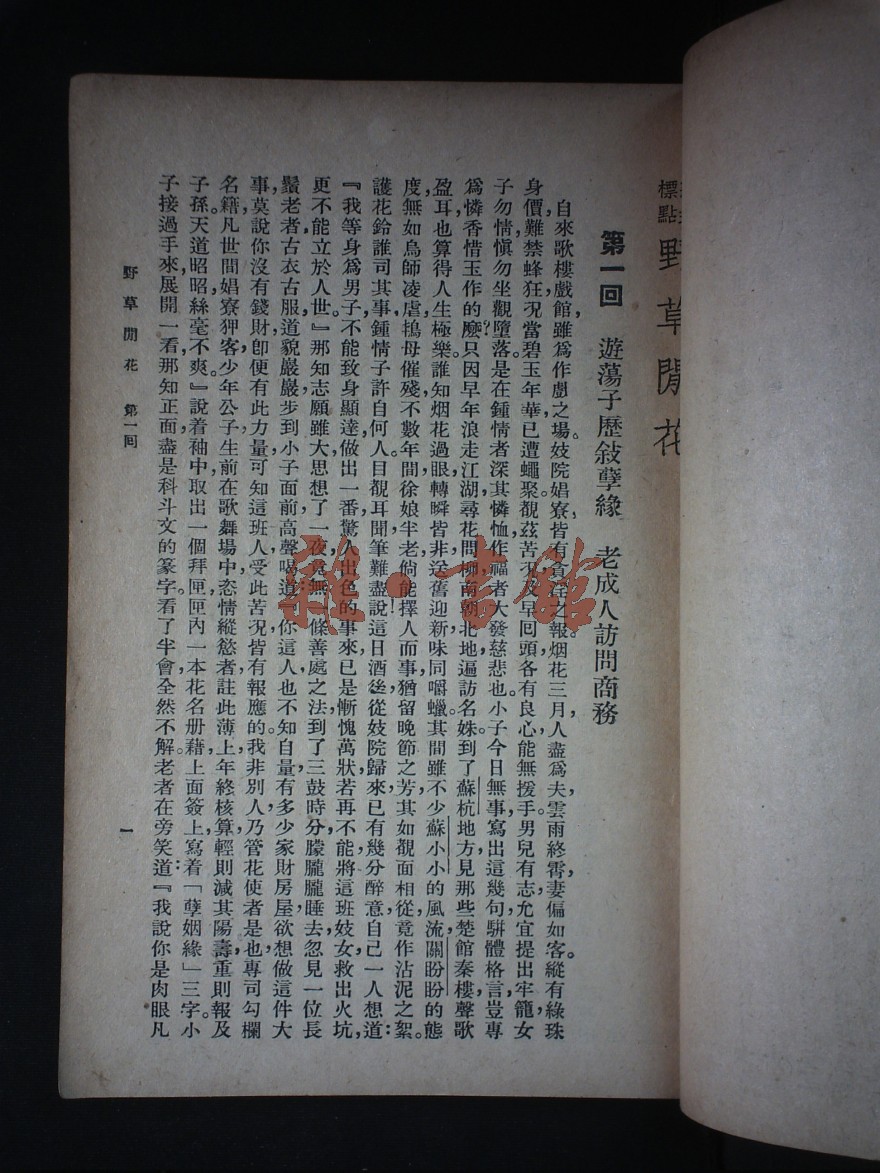 標點 野草閒花
第一回 遊蕩子歷敍孽緣 老成人訪問商務
自來歌樓戲館，雖爲作戲之場。妓院娼寮，皆有貪淫之報。烟花三月，人盡爲夫，雲雨終宵，妻偏如客。縱有綠珠
身價，難禁蜂狂，況當碧玉年華，已遭蠅聚，覩茲苦況，及早回頭，各有良心，能無援手。男兒有志，允宜提出牢籠，女
子勿情，愼勿坐觀墮落。是在鍾情者深其憐恤，作福者大發慈悲也。小子今日無事，寫出這幾句騈體格言，豈專
爲憐香惜玉作的麽？只因早年浪走江湖，尋花問柳，南朝北地，遍訪名姝。到了蘇杭地方，見那些楚館秦樓，聲歌
盈耳，也算得人生極樂。誰知烟花過眼，轉瞬皆非，送舊迎新，味同嚼蠟。其間雖不少蘇小小的風流，關盼盼的態
度，無如鳥師凌虐，搗母催殘，不數年間，徐娘半老，倘能擇人而事，猶留晚節之芳，其如覩面相從，竟作沾泥之絮。
護花鈴誰司其事，鍾情子許自何人。目覩耳聞，筆難盡說！這日酒後，從妓院歸來，已有幾分醉意，自己一人想道：
『我等身爲男子，不能致身顯達，做出一番驚人出色的事來，已是慚愧萬狀，若再不能將這班妓女救出火坑，
更不能立於人世。』那知志願雖大，思想了一夜，竟無一條善處之法。到了三鼓時分，朦朧朧睡去，忽見一位長
鬚老者，古衣古服，道貌嚴嚴，步到小子面前，高聲喝道：『你這人也不知自量，有多少家財房屋，欲想做這件大
事，莫說你沒有錢財，卽便有此力量，可知這班人受此苦況，皆有報應的。我非別人，乃管花使者是也，專司勾欄
名籍，凡世間娼寮狎客，少年公子，生前在歌舞場中，恣情縱慾者，註此薄上，年終核算，輕則減其陽壽，重則報及
子孫，天道昭昭，絲毫不爽。』說着袖中取出一個拜匣，匣內一本花名册藉，上面簽上，寫着「孽姻緣」三字。小
子接過手來，展開一看，那知正面盡是科斗文的篆字，看了半會，全然不解。老者在旁笑道：『我說你是肉眼凡
野草閒花 第一回 一
雜·書館